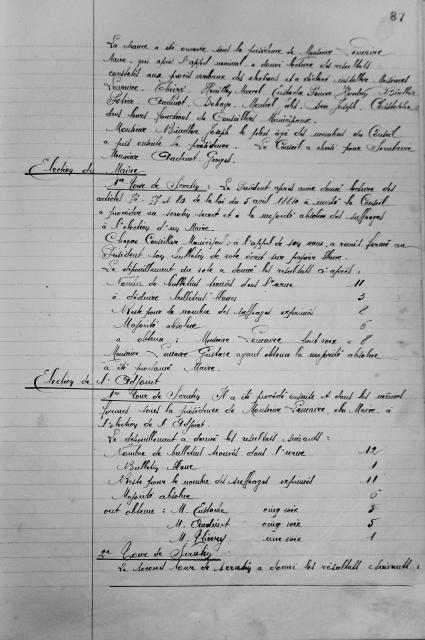 87
La séance a été ouverte sous la présidence de Monsieur Lemaire
Maire, qui après l'appel nominal a donné lecture des résultats
constatés aux procès verbaux des élections et a déclaré installer Messieurs
Lemaire. Thierry. Marcel Eustache
Audinet. Joseph. Christophe
dans leurs fonctions de Conseillers Municipaux.
Monsieur Joseph le plus âgé des membres du Conseil
a pris ensuite la présidence. Le Conseil a choisi pour Secrétaire
Monsieur Audinet Georges.
Election du Maire
1er Tour de Scrutin : Le Président après avoir donné lecture des
articles 76. 77 et 80 de la loi du 5 avril 1884 a invité le Conseil
a procéder au scrutin secret et à la majorité absolue des suffrages
à l'élection d'un Maire.
Chaque Conseiller Municipal, à l'appel de son nom, a remis fermé au
Président son bulletin de vote écrit sur papier blanc.
Le dépouillement du vote a donné les résultats ci-après :
Nombre de bulletins trouvés dans l'urne 11
à déduire bulletins blancs 3
Reste pour le nombre des suffrages exprimés 8
Majorité absolue 5
a obtenu : Monsieur Lemaire huit voix : 8
Monsieur Lemaire Gustave ayant obtenu la majorité absolue
a été proclamé Maire.
Election de l'Adjoint
1er Tour de Scrutin Il a été procédé ensuite et dans les mêmes
formes sous la présidence de Monsieur Lemaire, élu Maire à
l'élection de l'Adjoint.
Le dépouillement a donné les résultats suivants :
Nombre de bulletins trouvés dans l'urne 12
Bulletin blanc 1
Reste pour le nombre des suffrages exprimés 11
Majorité absolue 6
ont obtenu : M. Eustache cinq voix 5
M. Audinet cinq voix 5
M. Thierry une voix 1
2e Tour de Scrutin
Le second tour de scrutin a donné les résultats suivants :